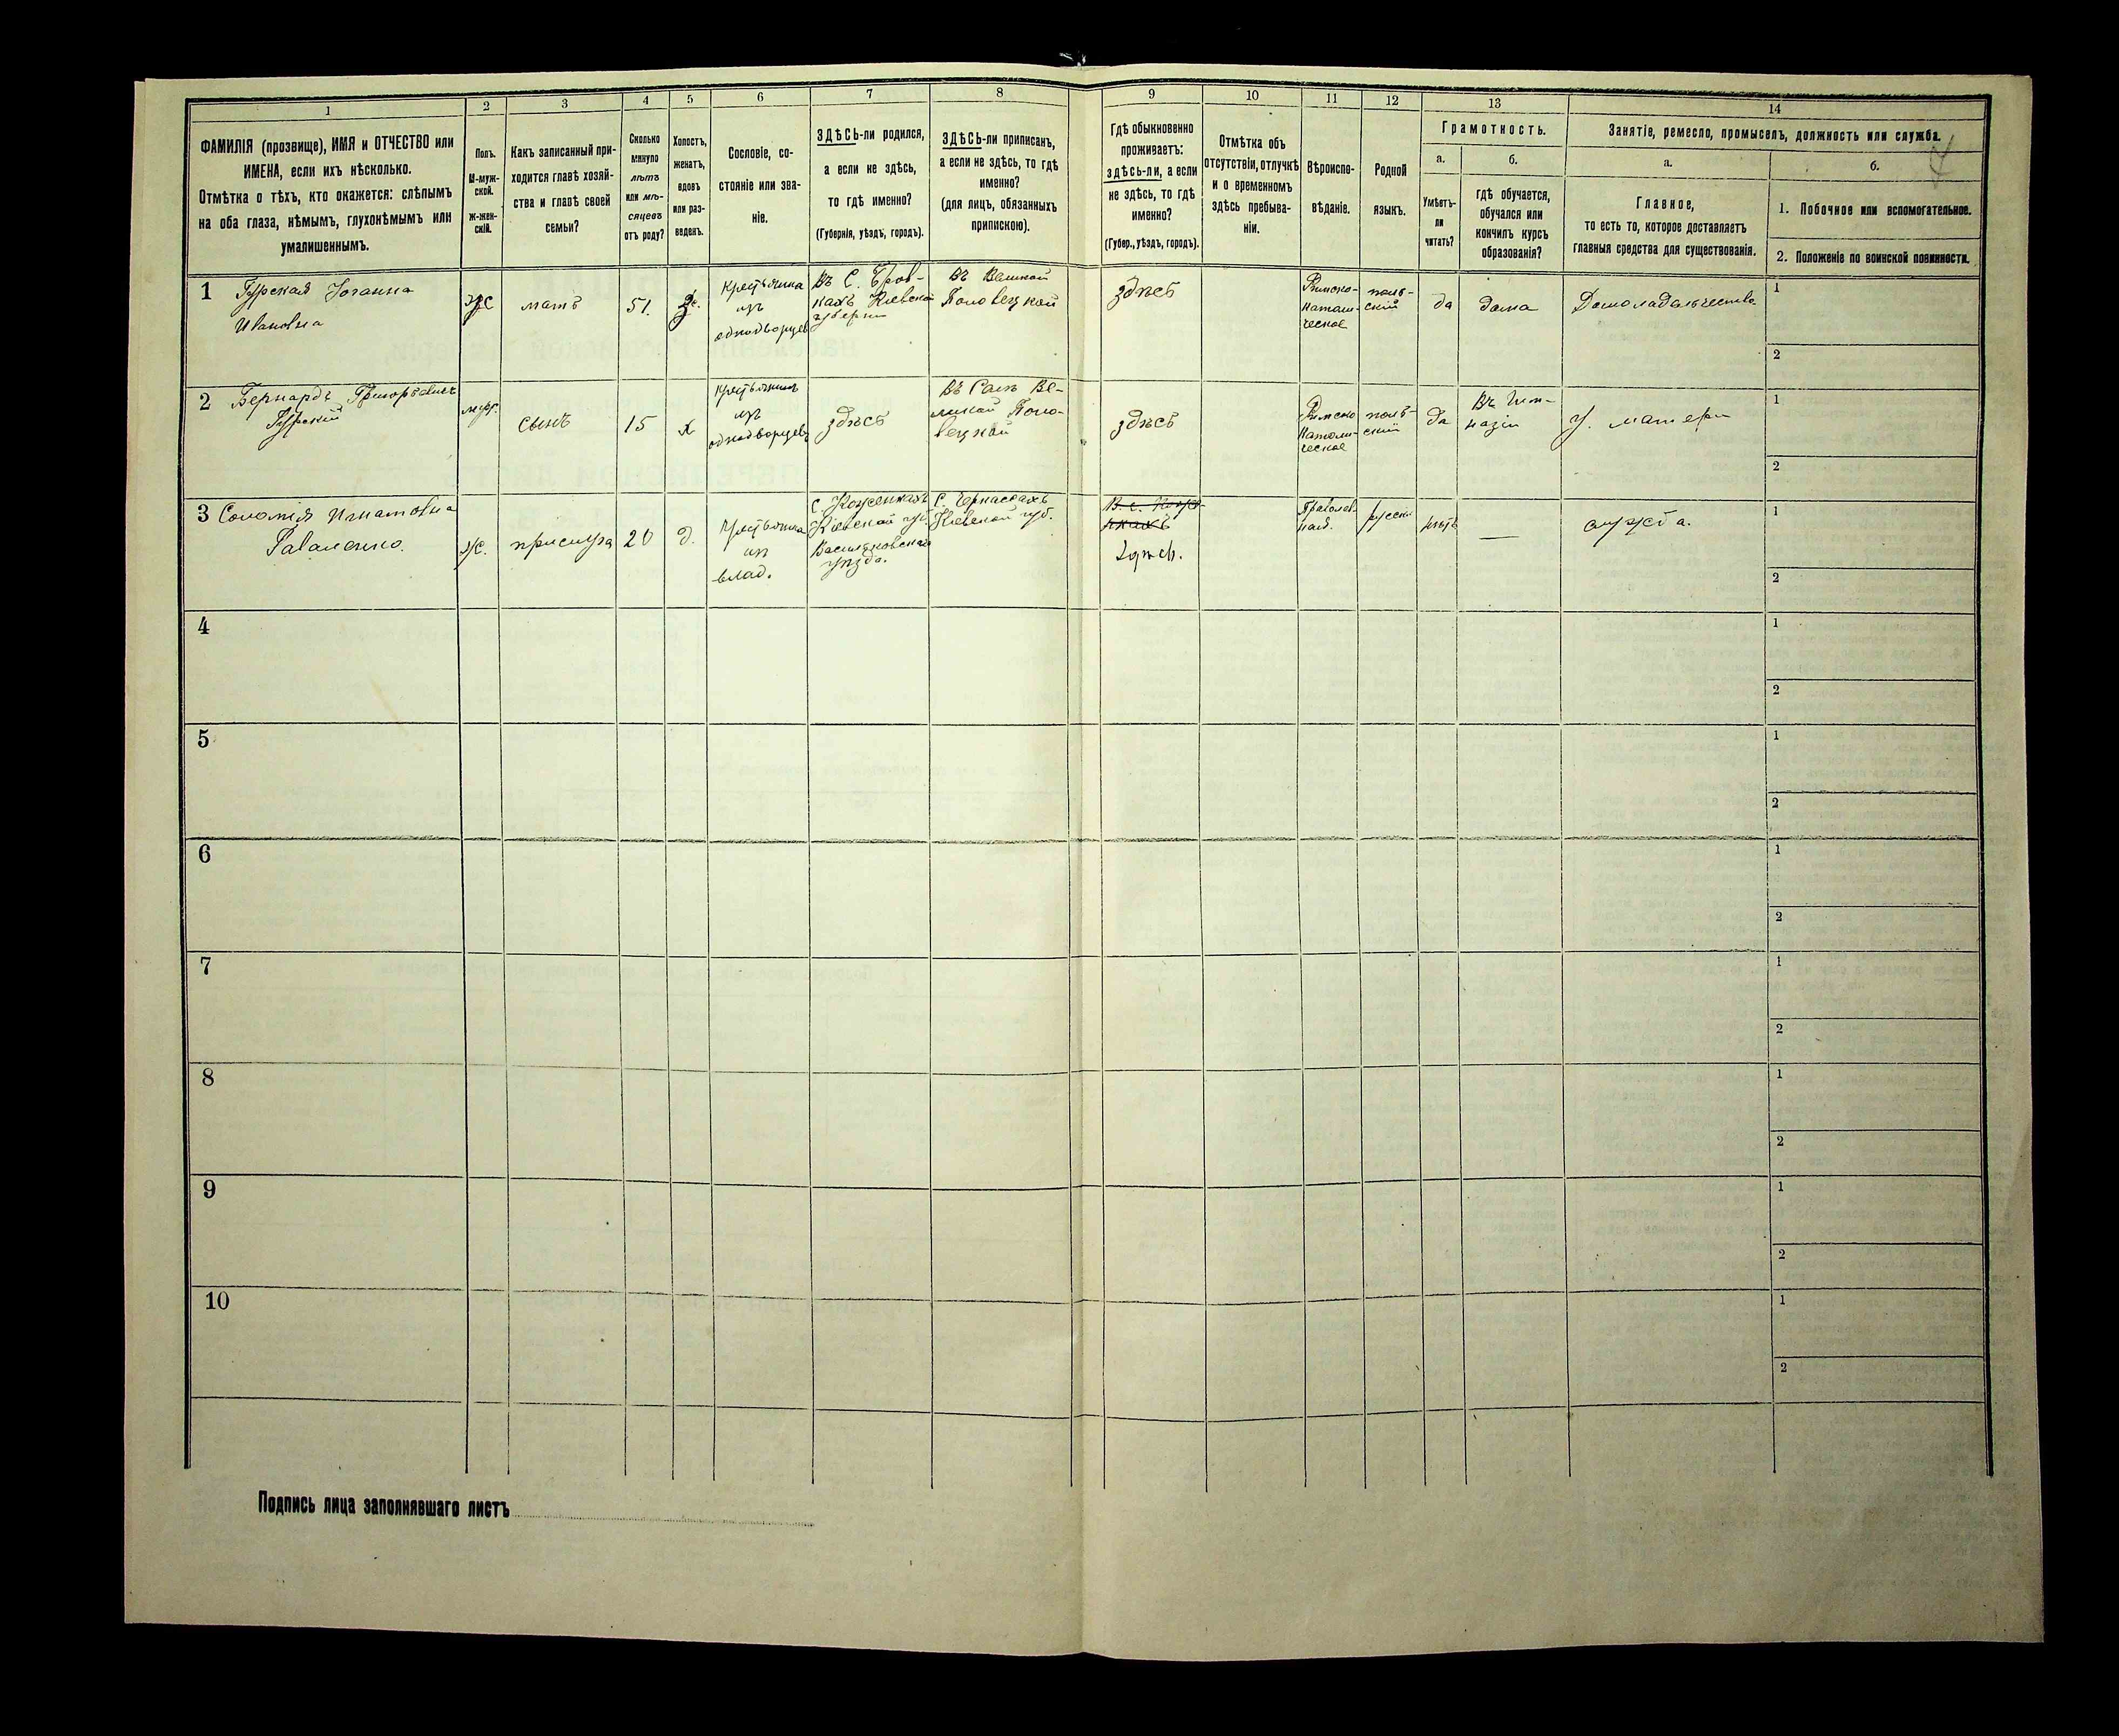 1
2
3
4
5
6
7
8
9
10
11
12
13
14
ФАМИЛІЯ (прозвище), ИМЯ и ОТЧЕСТВО или
ИМЕНА, если ихъ нѣсколько.
Отмѣтка о тѣхъ, кто окажется: слѣпымъ
на оба глаза, нѣмымъ, глухонѣмымъ или
умалишеннымъ.
Полъ.
М-муж-
ской.
Ж-жен-
скій.
Какъ записанный при-
ходится главѣ хозяй-
ства и главѣ своей
семьи?
Сколько
минуло
лѣтъ
или мѣ-
сяцевъ
отъ роду?
Холостъ,
женатъ,
вдовъ
или раз-
веденъ.
Сословіе, со-
стояніе или зва-
ніе.
ЗДѢСЬ-ли родился,
а если не здѣсь,
то гдѣ именно?
(Губернія, уѣздъ, городъ).
ЗДѢСЬ-ли приписанъ,
а если не здѣсь, то гдѣ
именно?
(для лицъ, обязанныхъ
припискою).
Гдѣ обыкновенно
проживаетъ:
здѣсь-ли, а если
не здѣсь, то гдѣ
именно?
(Губер., уѣздъ, городъ).
Отмѣтка объ
отсутствіи, отлучкѣ
и о временномъ
здѣсь пребыва-
ніи.
Вѣроиспо-
вѣданіе.
Родной
языкъ.
Грамотность.
а.
Умѣетъ-
ли
читать?
б.
гдѣ обучается,
обучался или
кончилъ курсъ
образованія?
Занятіе, ремесло, промыселъ, должность или служба.
а.
Главное,
то есть то, которое доставляетъ
главныя средства для существованія.
б.
1. Побочное или вспомогательное.
2. Положеніе по воинской повинности.
1
Гурская Іоганна
Ивановна
мать
51.
Крестьянка
изъ
однодворцевъ
Въ С. Бров-
кахъ Кіевской
губерніи
Въ Великой
Половецкой
здѣсь
Римско-
Католи-
ческое
поль-
скій
да
дома
Домовладѣльчество
1
2
2
Бернардъ Григорьевичъ
Гурскій
муж.
сынъ
15
х
Крестьянинъ
изъ
однодворцевъ
здѣсь
Въ Селѣ Ве-
ликой Поло-
вецкой
здѣсь
Римско
Католи-
ческое
поль-
скій
да
Въ Гим-
назіи
У матери
1
2
3
Соломія Игнатовна
ж.
прислуга
20
д.
Крестьянка
изъ
влад.
Кіевской губ.
Васильковскаго
уѣзда.
С. Черкассахъ
Кіевской губ.
Здѣсь.
Православ
русскі
нѣтъ
—
служба.
1
2
4
1
2
5
1
2
6
1
2
7
1
2
8
1
2
9
1
2
10
1
2
Подпись лица заполнявшаго листъ